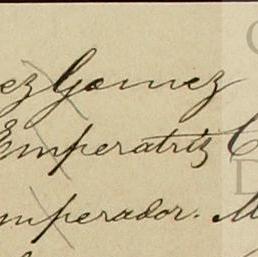 ez Gomez
Emperatriz C
mperador. M